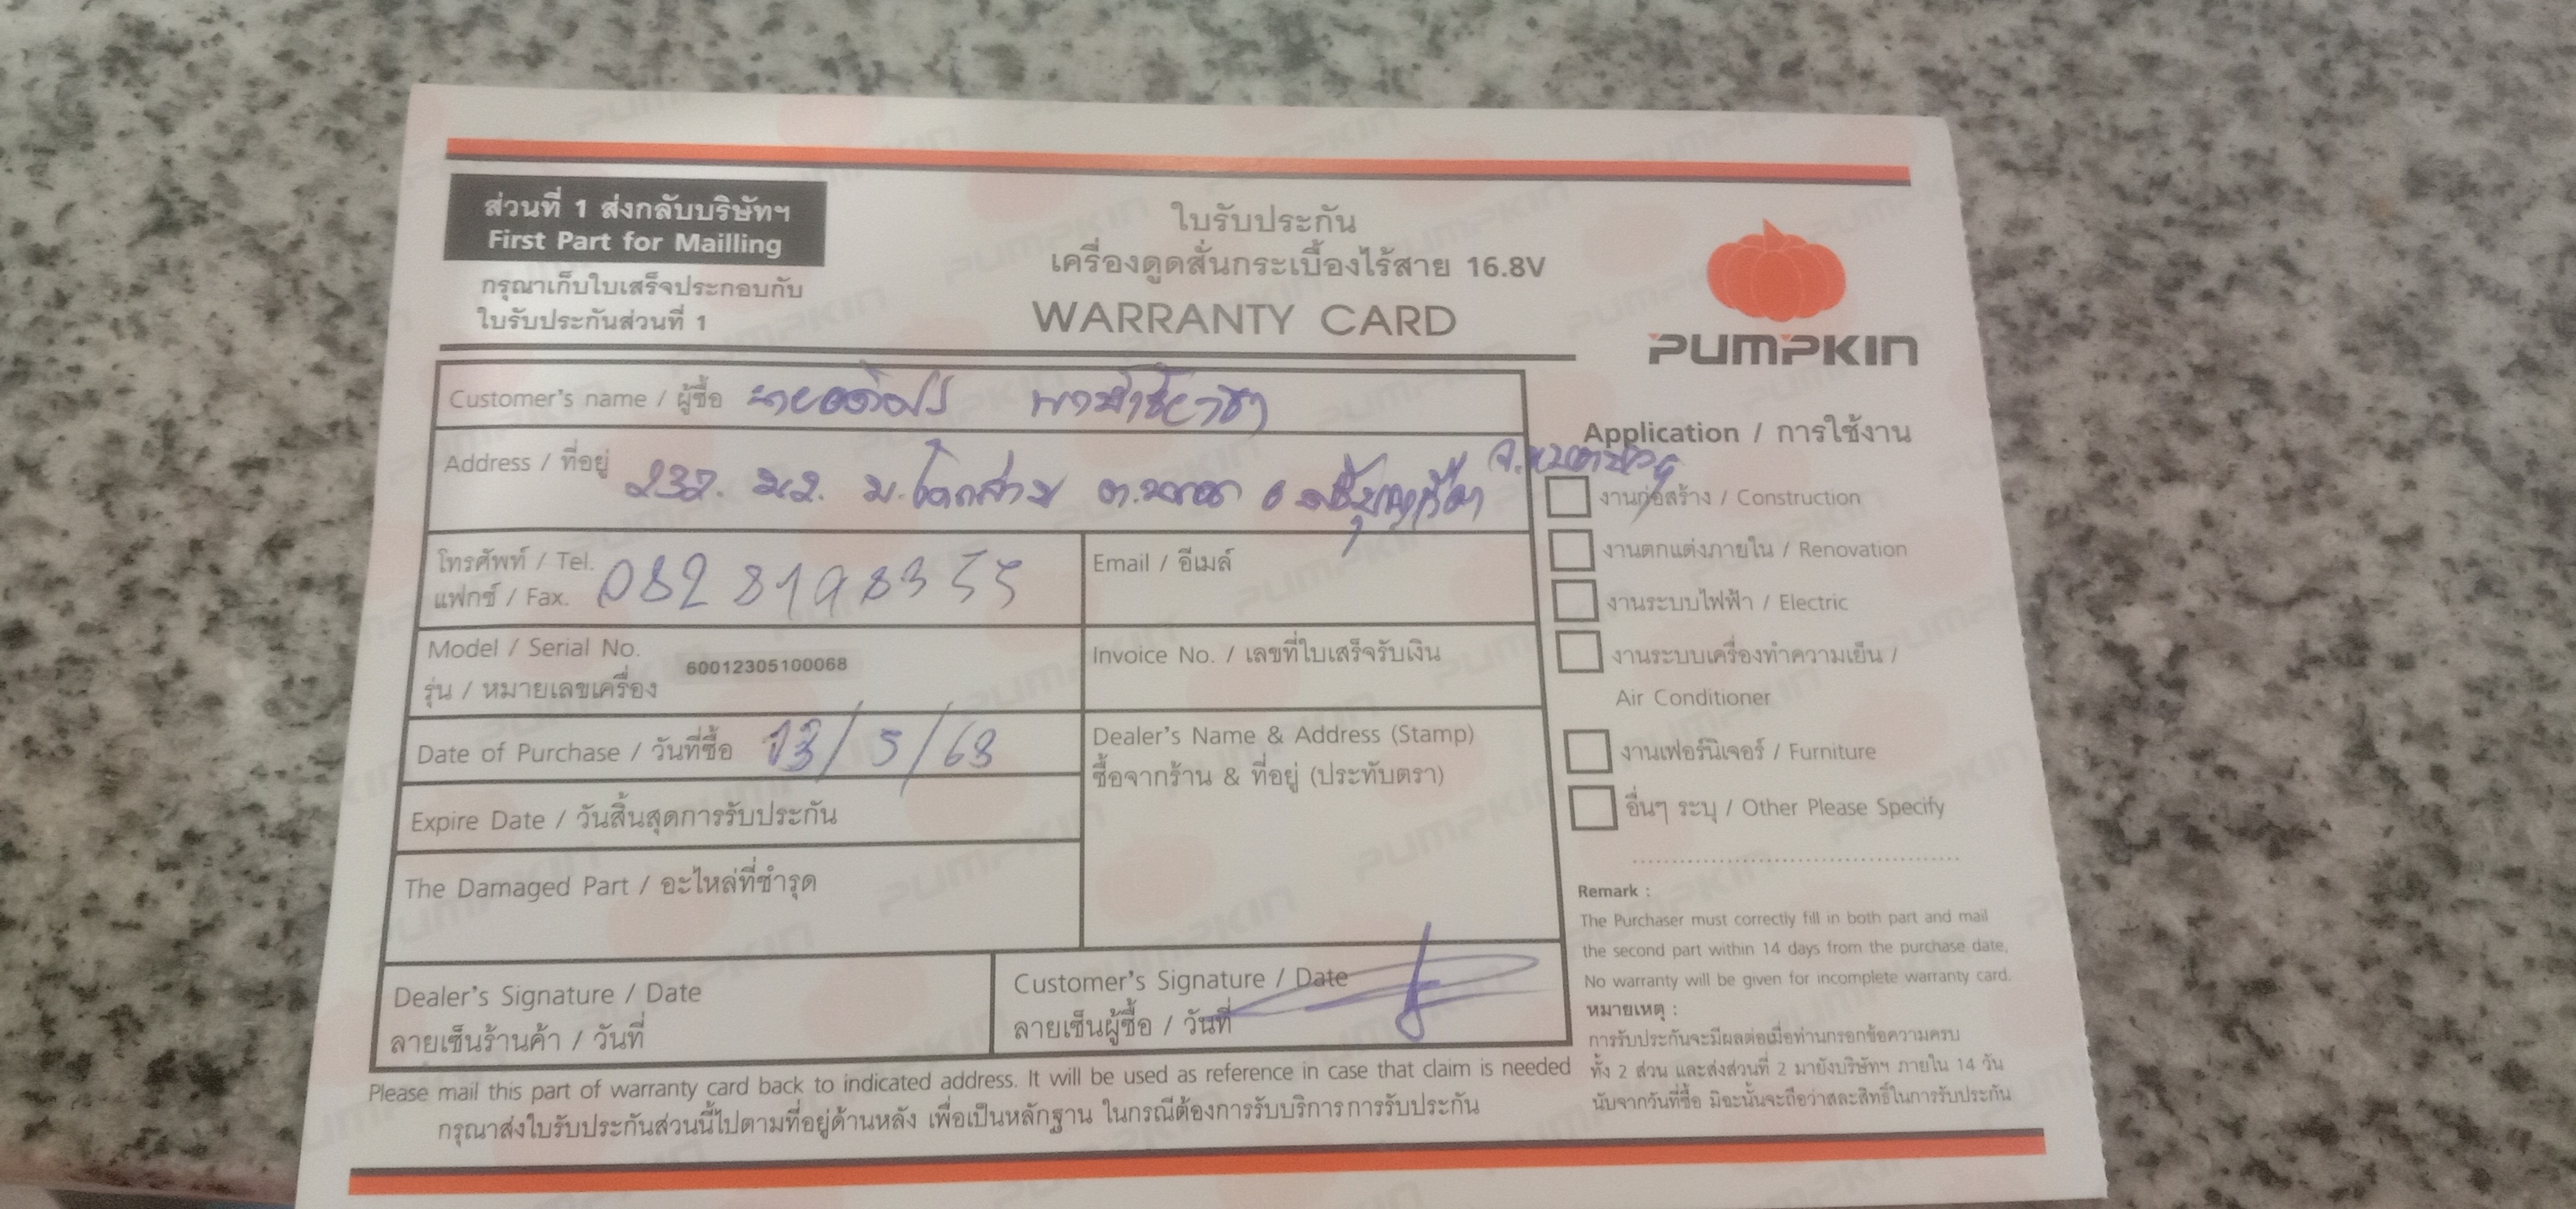 ส่วนที่ 1 ส่งกลับบริษัทฯ
First Part for Mailling
กรุณาเก็บใบเสร็จประกอบกับ
ใบรับประกันส่วนที่ 1
ใบรับประกัน
เครื่องดูดสั่นกระเบื้องไร้สาย 16.8V
WARRANTY CARD
PUMPKIN
Customer's name / ผู้ซื้อ
Address / ที่อยู่ 232. ม.2.
โทรศัพท์ / Tel.
แฟกซ์ / Fax. 082 8198355
Email / อีเมล์
Model / Serial No.
รุ่น / หมายเลขเครื่อง 60012305100068
Invoice No. / เลขที่ใบเสร็จรับเงิน
Date of Purchase / วันที่ซื้อ 13/5/68
Dealer's Name & Address (Stamp)
ซื้อจากร้าน & ที่อยู่ (ประทับตรา)
Expire Date / วันสิ้นสุดการรับประกัน
The Damaged Part / อะไหล่ที่ชำรุด
Dealer's Signature / Date
ลายเซ็นร้านค้า / วันที่
Customer's Signature / Date
ลายเซ็นผู้ซื้อ / วันที่
Please mail this part of warranty card back to indicated address. It will be used as reference in case that claim is needed
กรุณาส่งใบรับประกันส่วนนี้ไปตามที่อยู่ด้านหลัง เพื่อเป็นหลักฐาน ในกรณีต้องการรับบริการการรับประกัน
Application / การใช้งาน
งานก่อสร้าง / Construction
งานตกแต่งภายใน / Renovation
งานระบบไฟฟ้า / Electric
งานระบบเครื่องทำความเย็น /
Air Conditioner
งานเฟอร์นิเจอร์ / Furniture
อื่นๆ ระบุ / Other Please Specify
Remark :
The Purchaser must correctly fill in both part and mail
the second part within 14 days from the purchase date.
No warranty will be given for incomplete warranty card.
หมายเหตุ :
การรับประกันจะมีผลต่อเมื่อท่านกรอกข้อความครบ
ทั้ง 2 ส่วน และส่งส่วนที่ 2 มายังบริษัทฯ ภายใน 14 วัน
นับจากวันที่ซื้อ มิฉะนั้นจะถือว่าสละสิทธิ์ในการรับประกัน